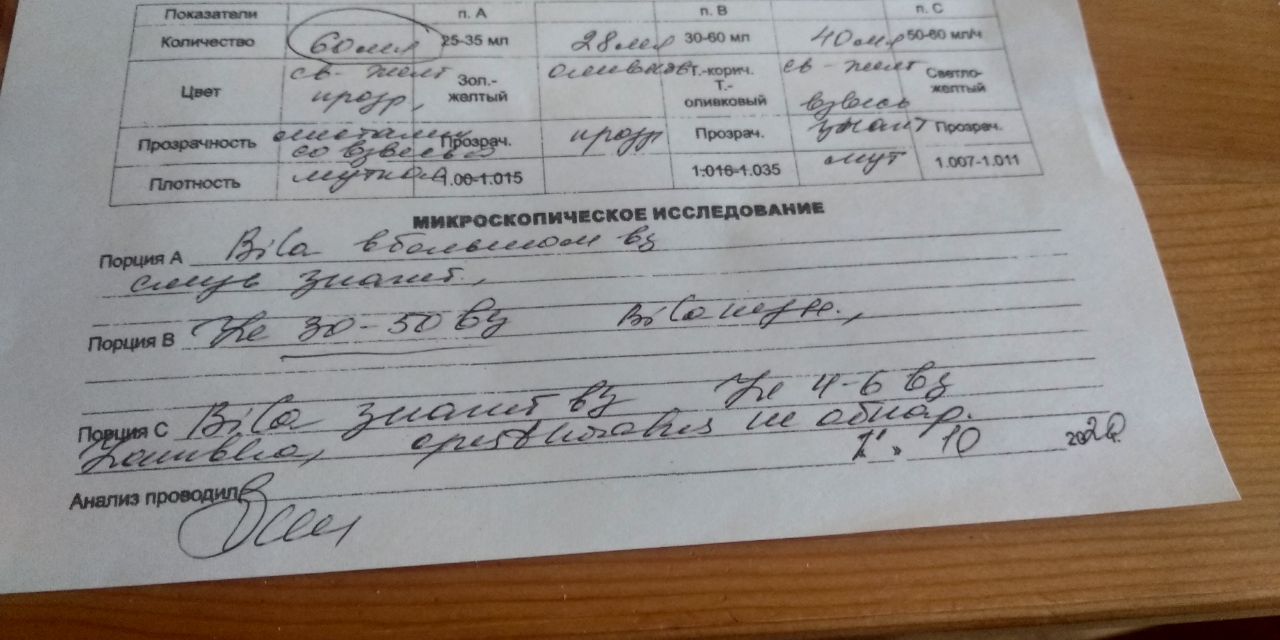 Показатели п. А п. В п. С
Количество 60мл 25-35 мл 28мл 30-60 мл 40мл 50-60 мл/ч
Цвет св-желт прозр, Зол.-желтый оливков Т.-корич. Т.-оливковый св-желт Светло-желтый
взвесь
Прозрачность с со взвесью Прозрач. прозр Прозрач. значит Прозрач.
Плотность мутная 1.00-1.015 1.016-1.035 мут 1.007-1.011
МИКРОСКОПИЧЕСКОЕ ИССЛЕДОВАНИЕ
Порция А BiCa в большом вз
слизь значит.,
Порция В Le 30-50 вз BiCa
Порция С BiCa значит вз Le 4-6 вз
Lamblia, не обнар.
10 2020.
Анализ проводил